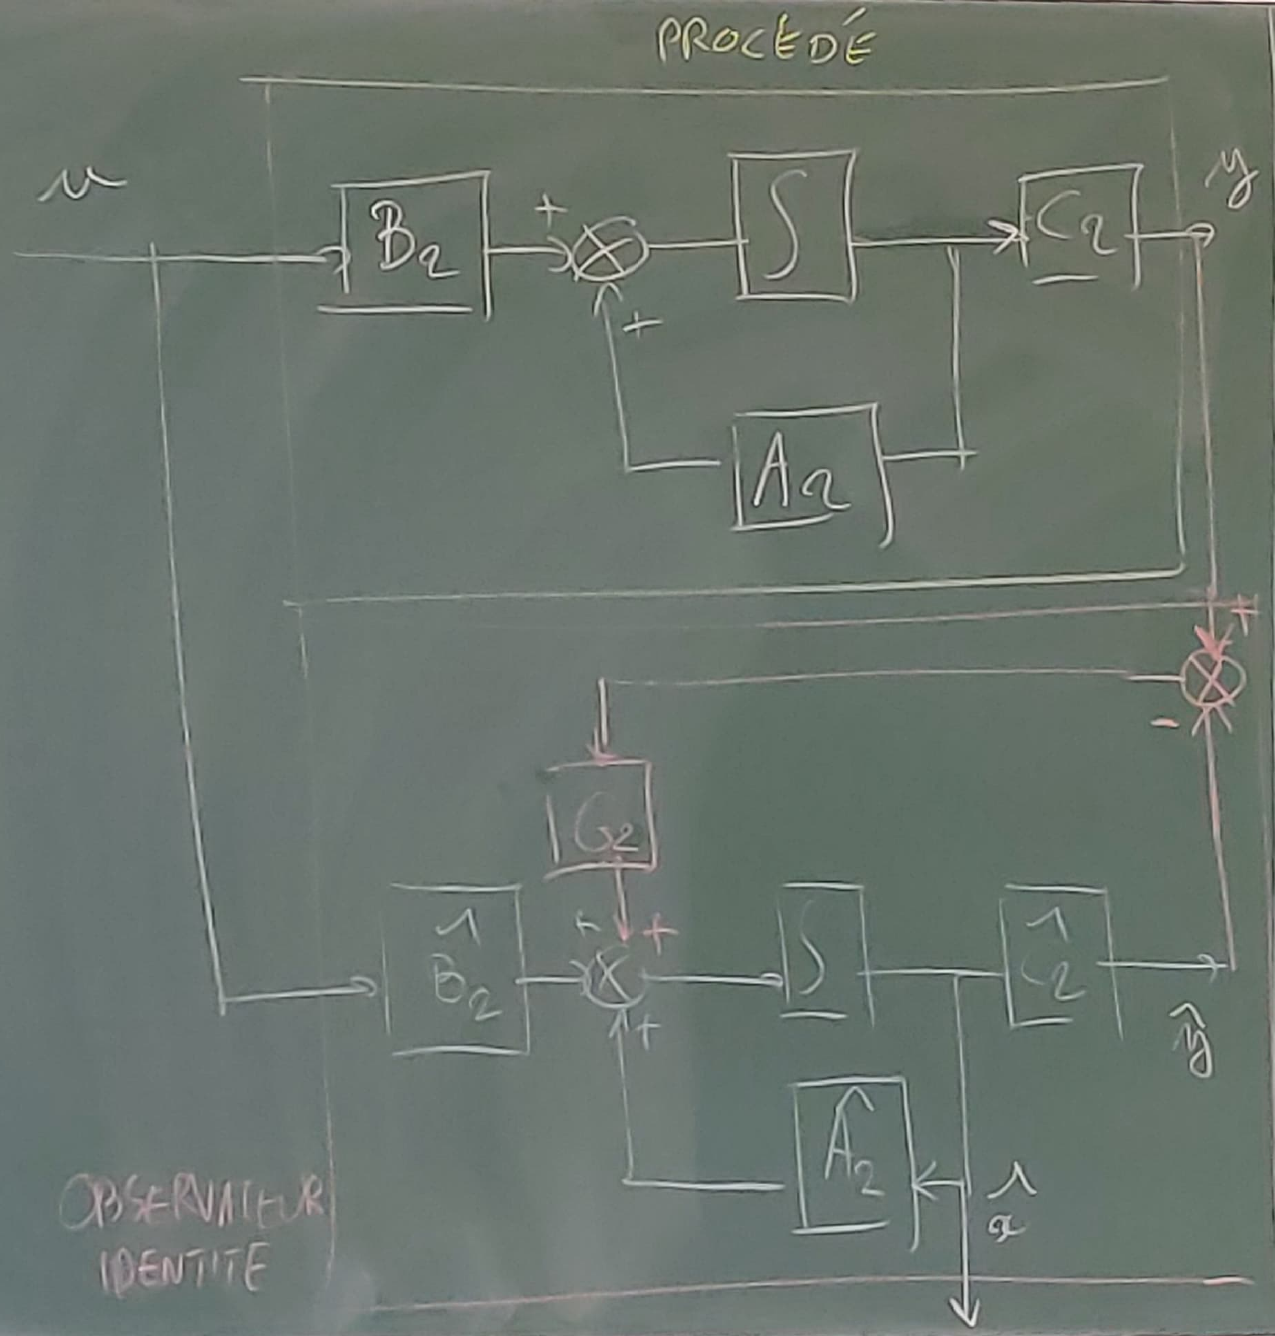 PROCÉDÉ
u
B₂
+
∫
C₂
y
+
A₂
+
-
G₂
+
+
B̂₂
∫
Ĉ₂
+
ŷ
Â₂
x̂
OBSERVATEUR
IDENTITÉ